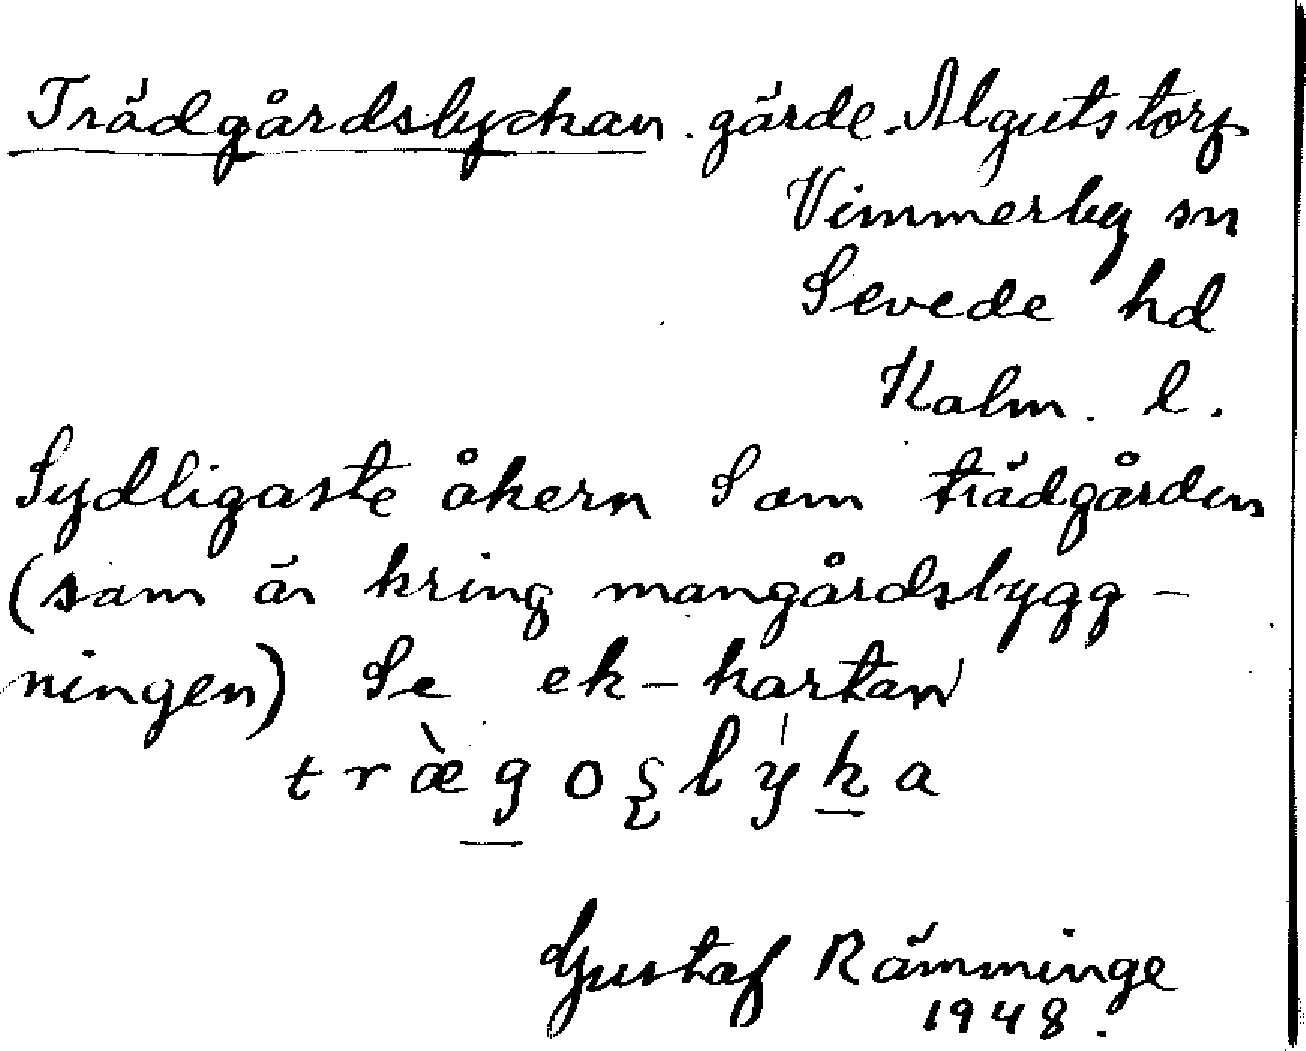 Trädgårdslyckan. gärde. Algutstorp
Vimmerby sn
Sevede hd
Kalm. l.
Sydligaste åkern Som trädgården
(som är kring mangårdsbygg-
ningen) Se ek-kartan
træ̀goslýka
Gustaf Rämminge
1948.